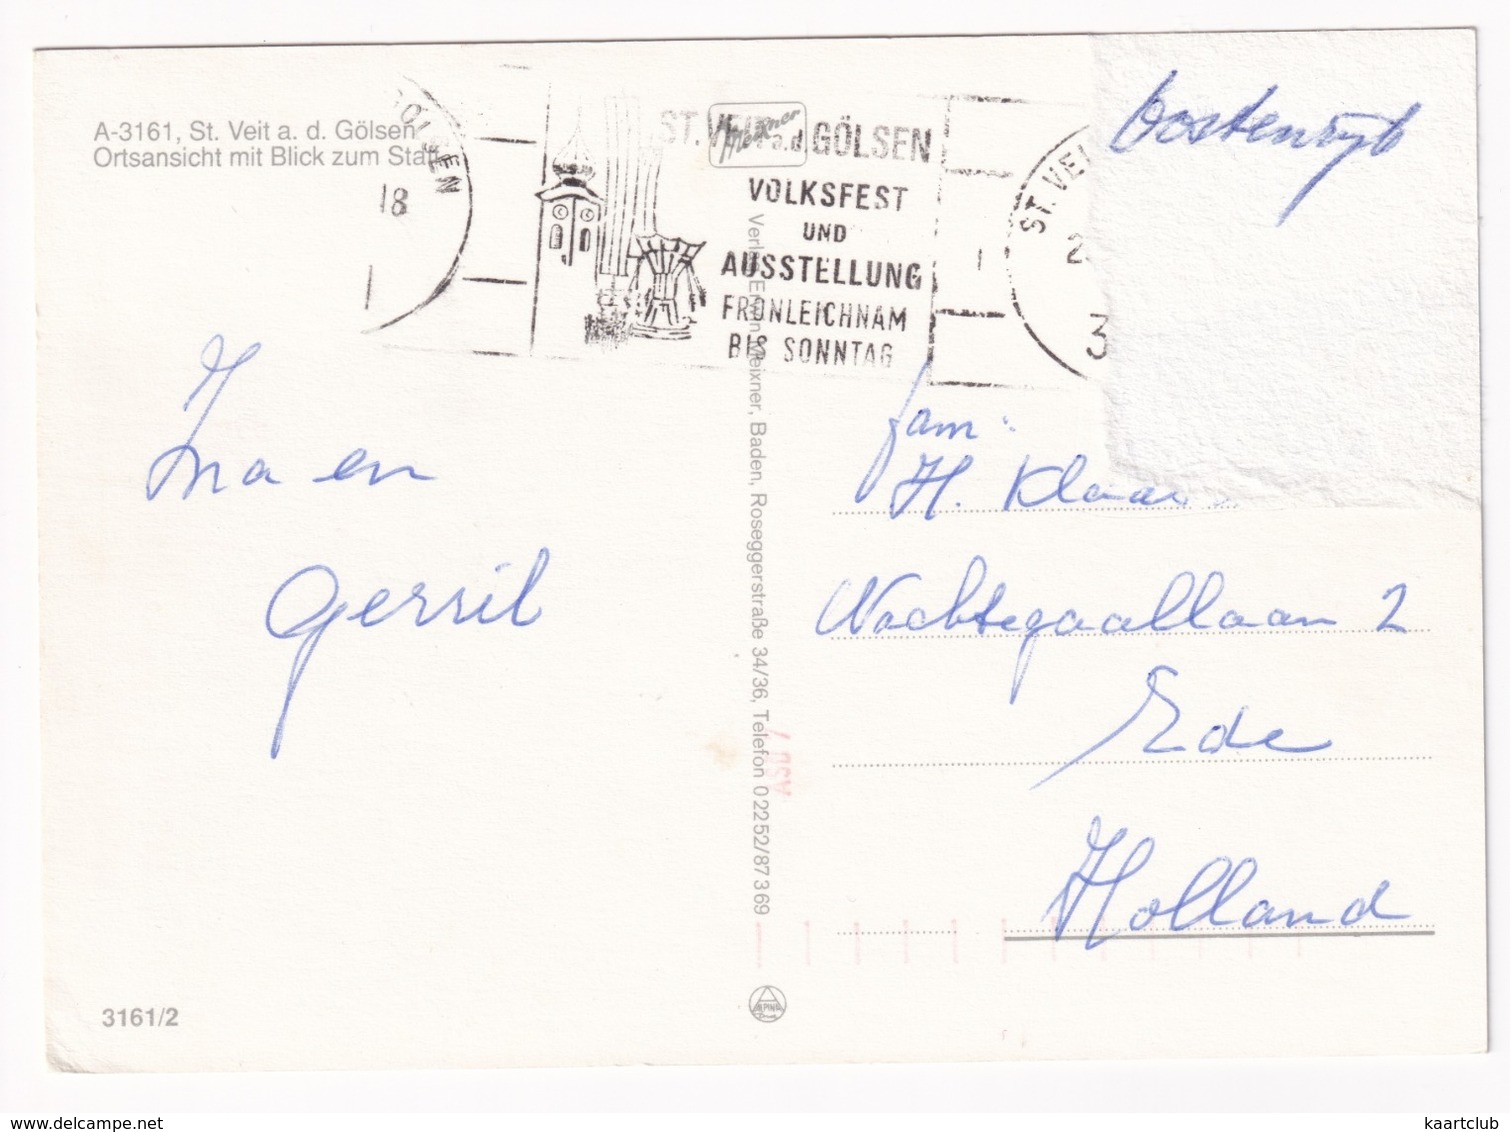 A-3161, St. Veit a. d. Gölsen
Ortsansicht mit Blick zum
GÖLSEN
18
Meixner
ST. VEIT a.d. GÖLSEN
VOLKSFEST
UND
AUSSTELLUNG
FRONLEICHNAM
BIS SONNTAG
ST. VEI
2
3
Oostenryk
Ina en
Gerrit
Verlag Erwin Meixner, Baden, Roseggerstraße 34/36, Telefon 02252/87369
fam:
H. Klaas
Nachtegaallaan 2
Ede
Holland
3161/2
ALPINA
kaartclub.delcampe.net
kaartclub